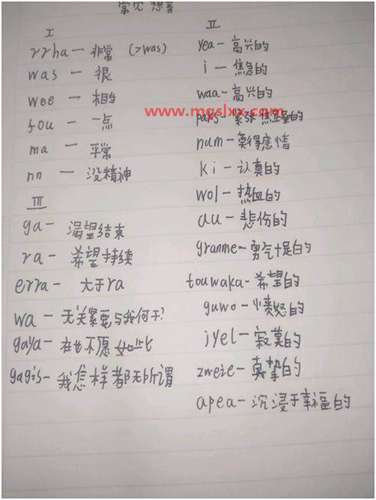 常见
I
rrha — 非常 (>was)
was — 很
wee — 相当
fou — 一点
ma — 平常
nn — 没精神
III
ga- 渴望结束
ra- 希望持续
erra- 大于ra
wa - 无关紧要与我何干?
gaya- 在也不愿如此
gagis- 我怎样都无所谓
II
yea- 高兴的
i - 焦急的
waa- 高兴的
www.mgslxx.com
num- 莫得感情
ki - 认真的
wol- 热血的
au- 悲伤的
granme- 勇气十足的
touwaka- 希望的
guwo- 愤怒的
jyel- 寂寞的
zweie- 真挚的
apea- 沉浸于幸福的